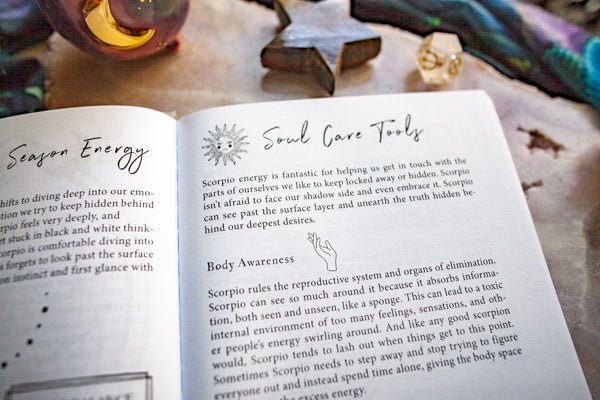 Season Energy
shifts to diving deep into our emo-
tion we try to keep hidden behind
orpio feels very deeply, and
et stuck in black and white think-
corpio is comfortable diving into
s forgets to look past the surface
on instinct and first glance with
Soul Care Tools
Scorpio energy is fantastic for helping us get in touch with the
parts of ourselves we like to keep locked away or hidden. Scorpio
isn't afraid to face our shadow side and even embrace it. Scorpio
can see past the surface layer and unearth the truth hidden be-
hind our deepest desires.
Body Awareness
Scorpio rules the reproductive system and organs of elimination.
Scorpio can see so much around it because it absorbs informa-
tion, both seen and unseen, like a sponge. This can lead to a toxic
internal environment of too many feelings, sensations, and oth-
er people's energy swirling around. And like any good scorpion
would, Scorpio tends to lash out when things get to this point.
Sometimes Scorpio needs to step away and stop trying to figure
everyone out and instead spend time alone, giving the body space
the excess energy.